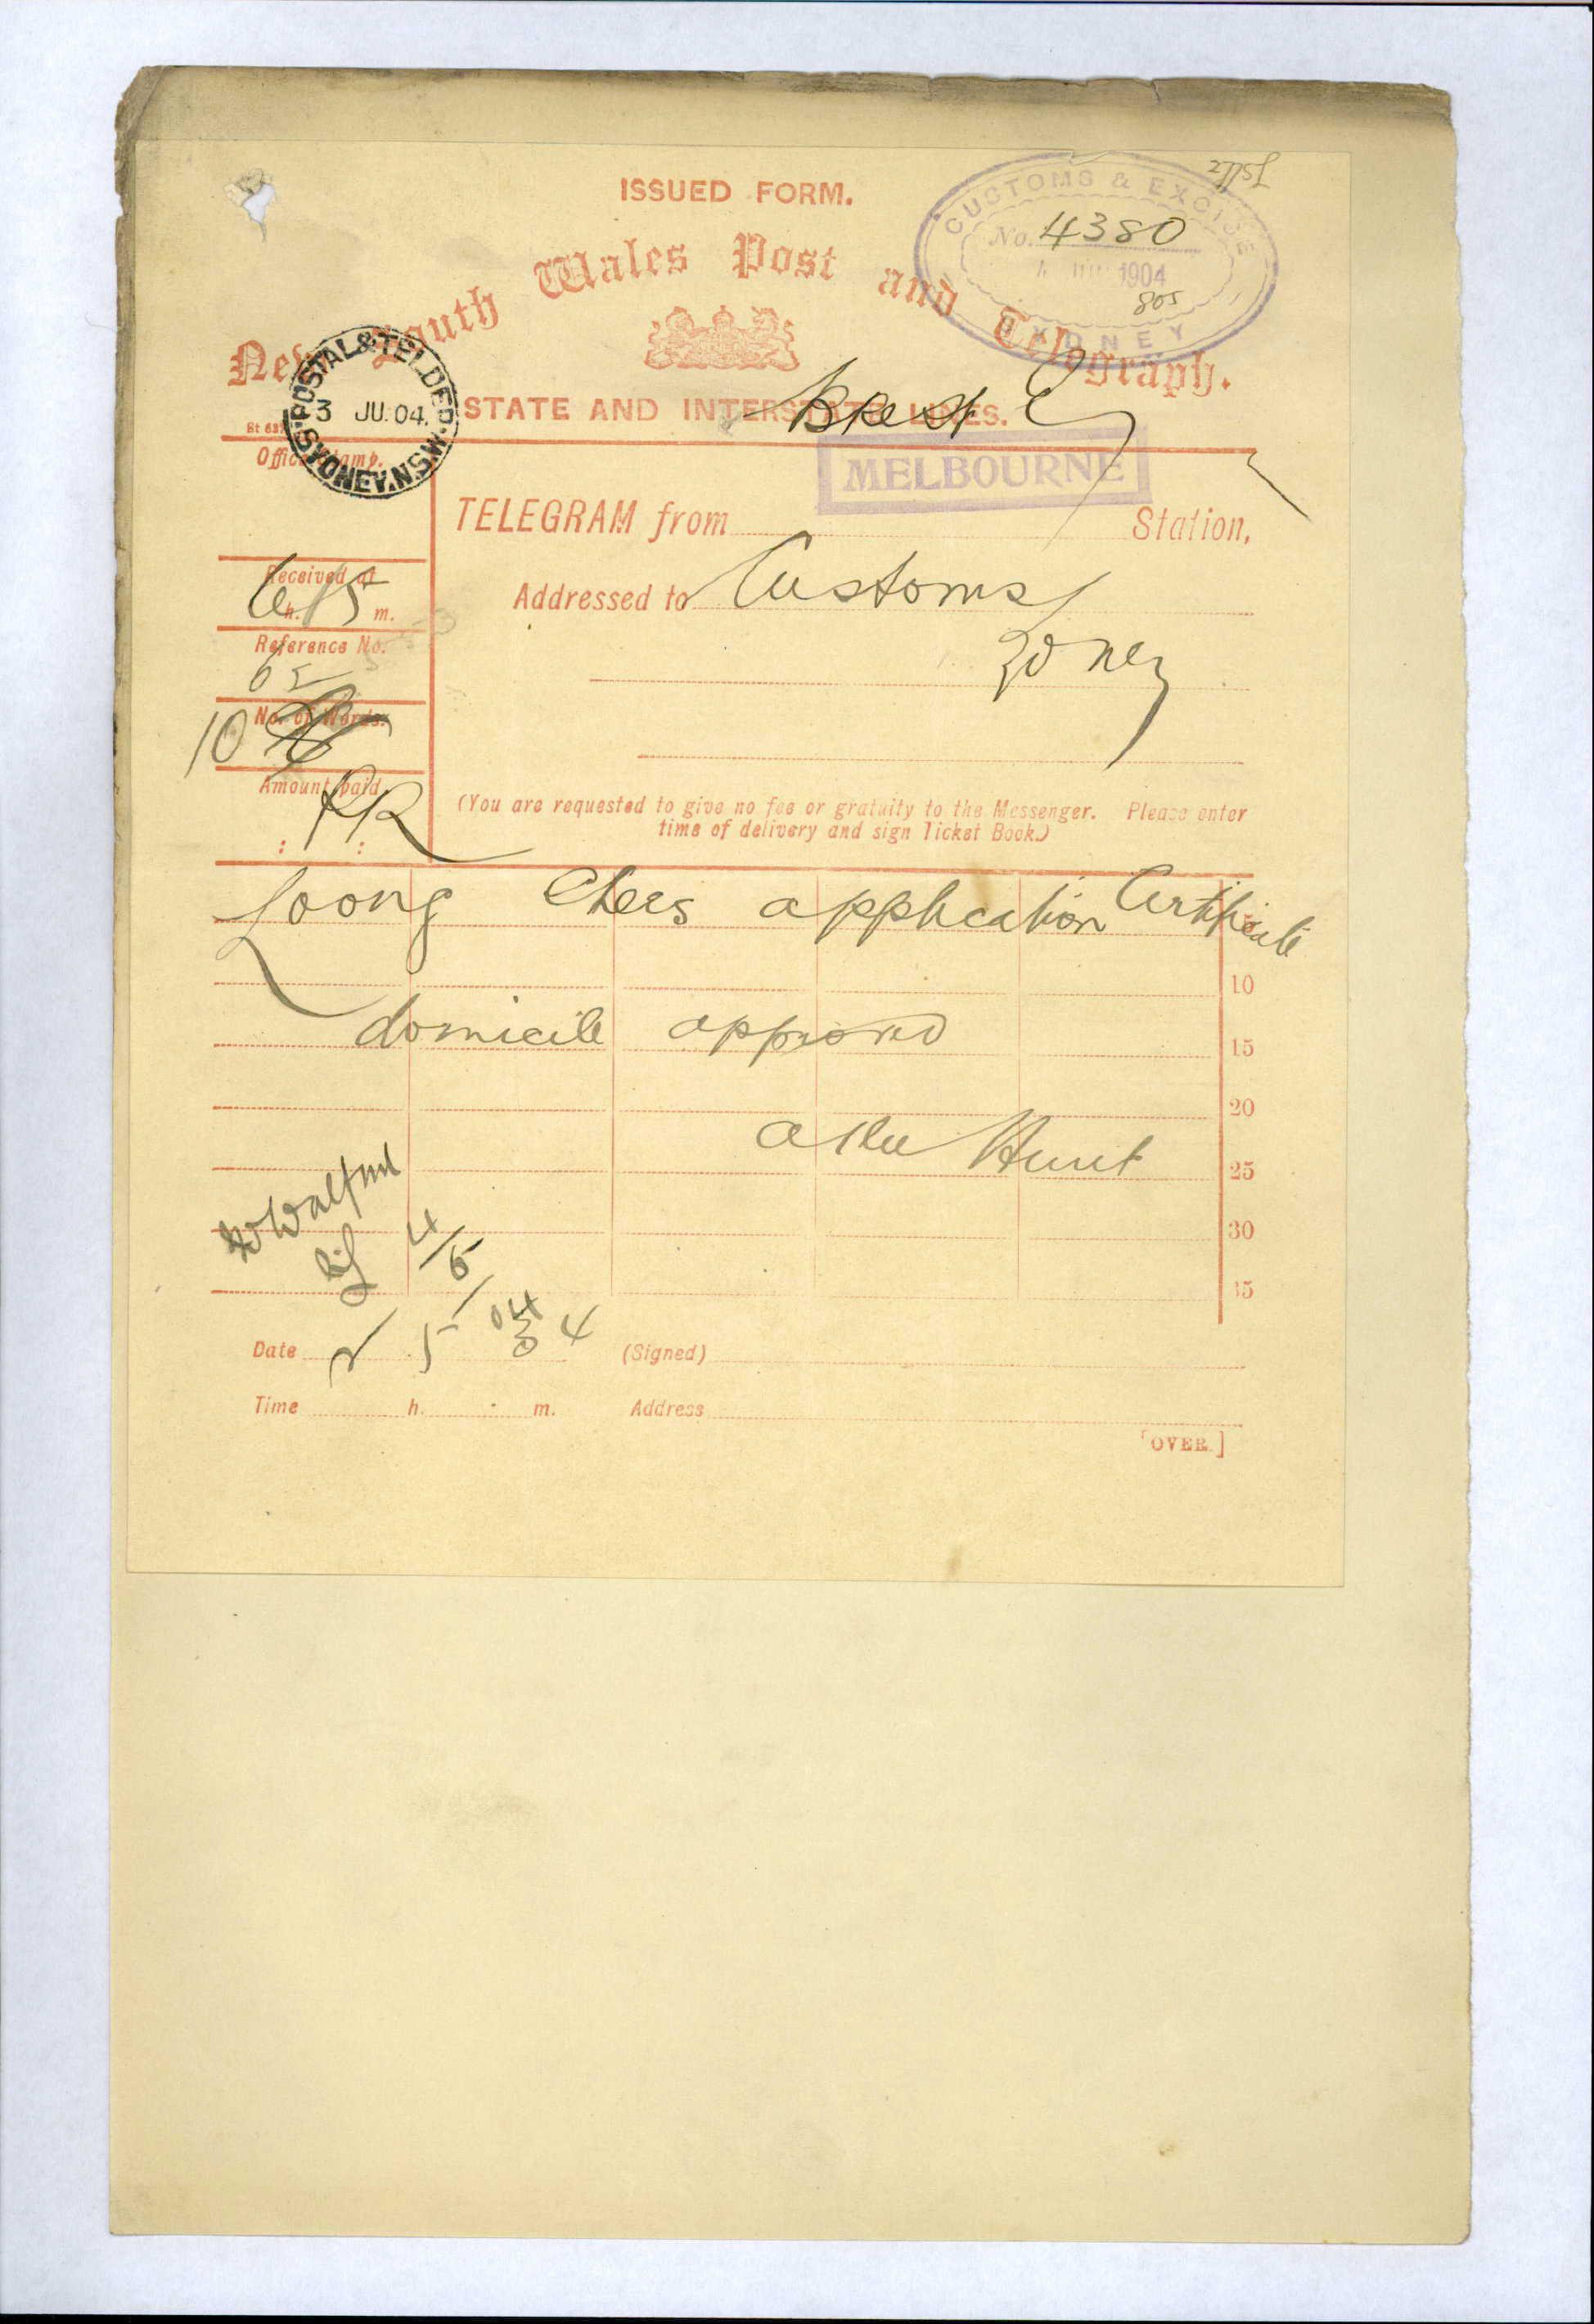 ISSUED FORM.
CUSTOMS & EXCISE
No. 4380
1904
805
SYDNEY
New South Wales Post and Telegraph.
POSTAL & TEL. DEP.
3 JU. 04.
SYDNEY. N.S.W.
STATE AND INTERSTATE LINES.
Office Stamp.
MELBOURNE
TELEGRAM from Station,
Received at
6 h. 15 m.
Addressed to Customs
Reference No.
No. of Words.
10
Amount paid.
: :
(You are requested to give no fee or gratuity to the Messenger. Please enter
time of delivery and sign Ticket Book.)
Loong Chees application Certificate
10
domicile approved
15
20
Hunt
25
30
35
4/6/04
Date (Signed)
Time h. m. Address
[OVER.]